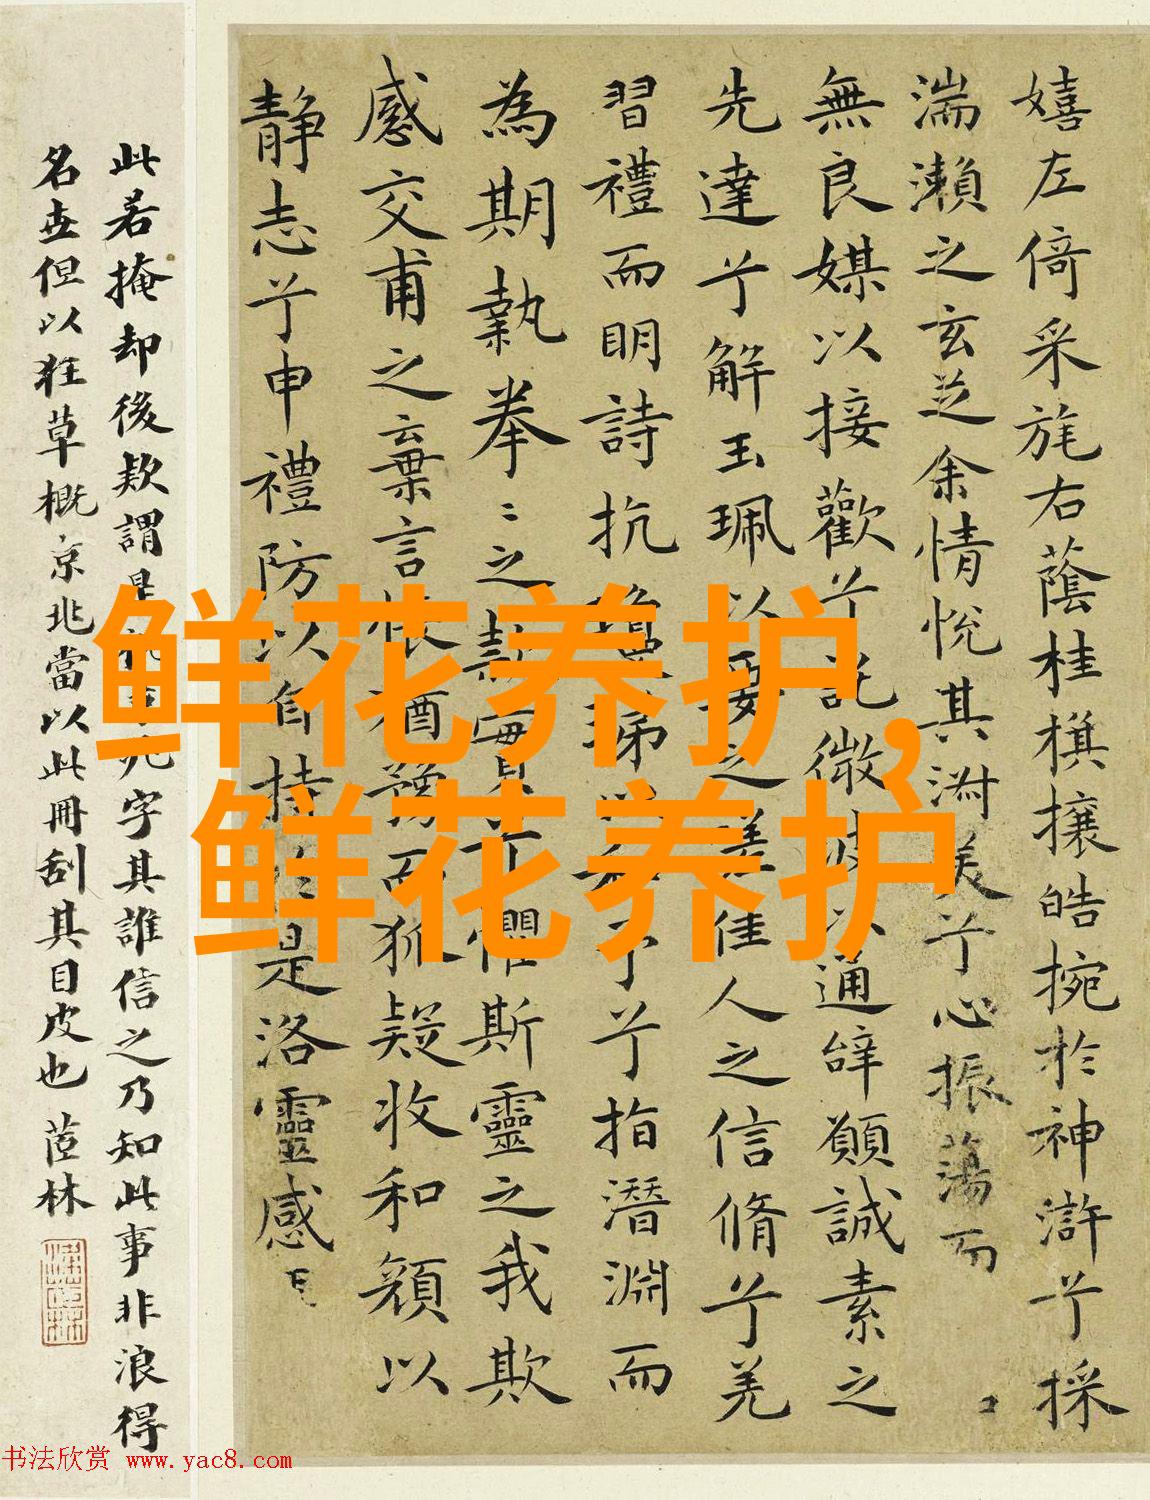 嬉左倚采旄右蔭桂横攘皓捥於神滸兮採
湍瀬之玄芝余情悅其淑美兮心振蕩而
無良媒以接歡兮託微波以通辭願誠素之
先達兮解玉珮以要之羙佳人之信脩兮羌
習禮而明詩抗瓊珶以和予兮指潛淵而
為期執拳〻之欵實兮懼斯靈之我欺
感交甫之棄言悵猶豫而狐疑收和顏以
靜志兮申禮防以自持於是洛靈感
此若掩却後欵謂是字其誰信之乃知此事非浪得
名古但以狂草概京兆當以此冊刮其目皮也 茝林
鲜花养护,
鲜花养护
书法欣赏 www.yac8.com